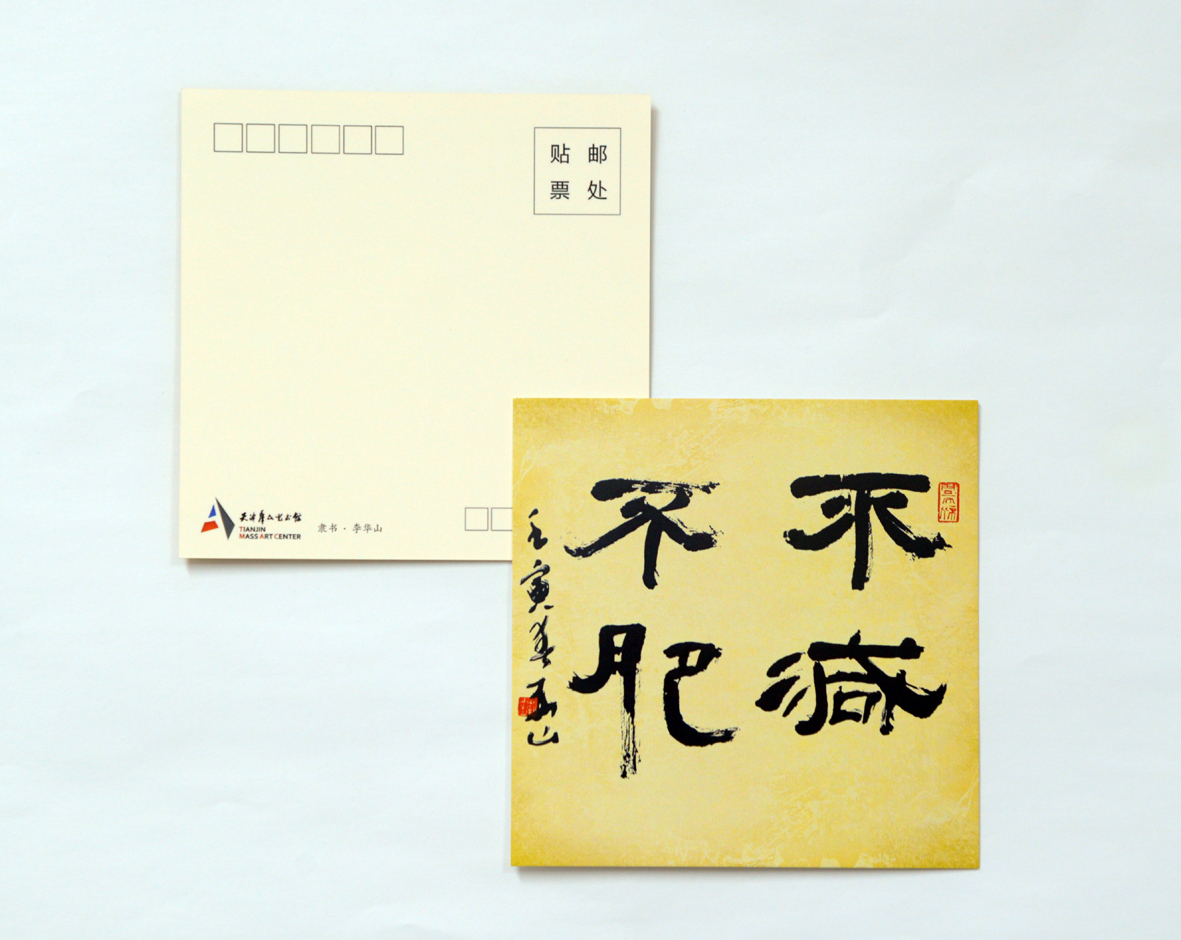 贴 邮
票 处
天津群众艺术馆
TIANJIN
MASS ART CENTER
隶书·李华山
不减
不肥
壬寅春华山